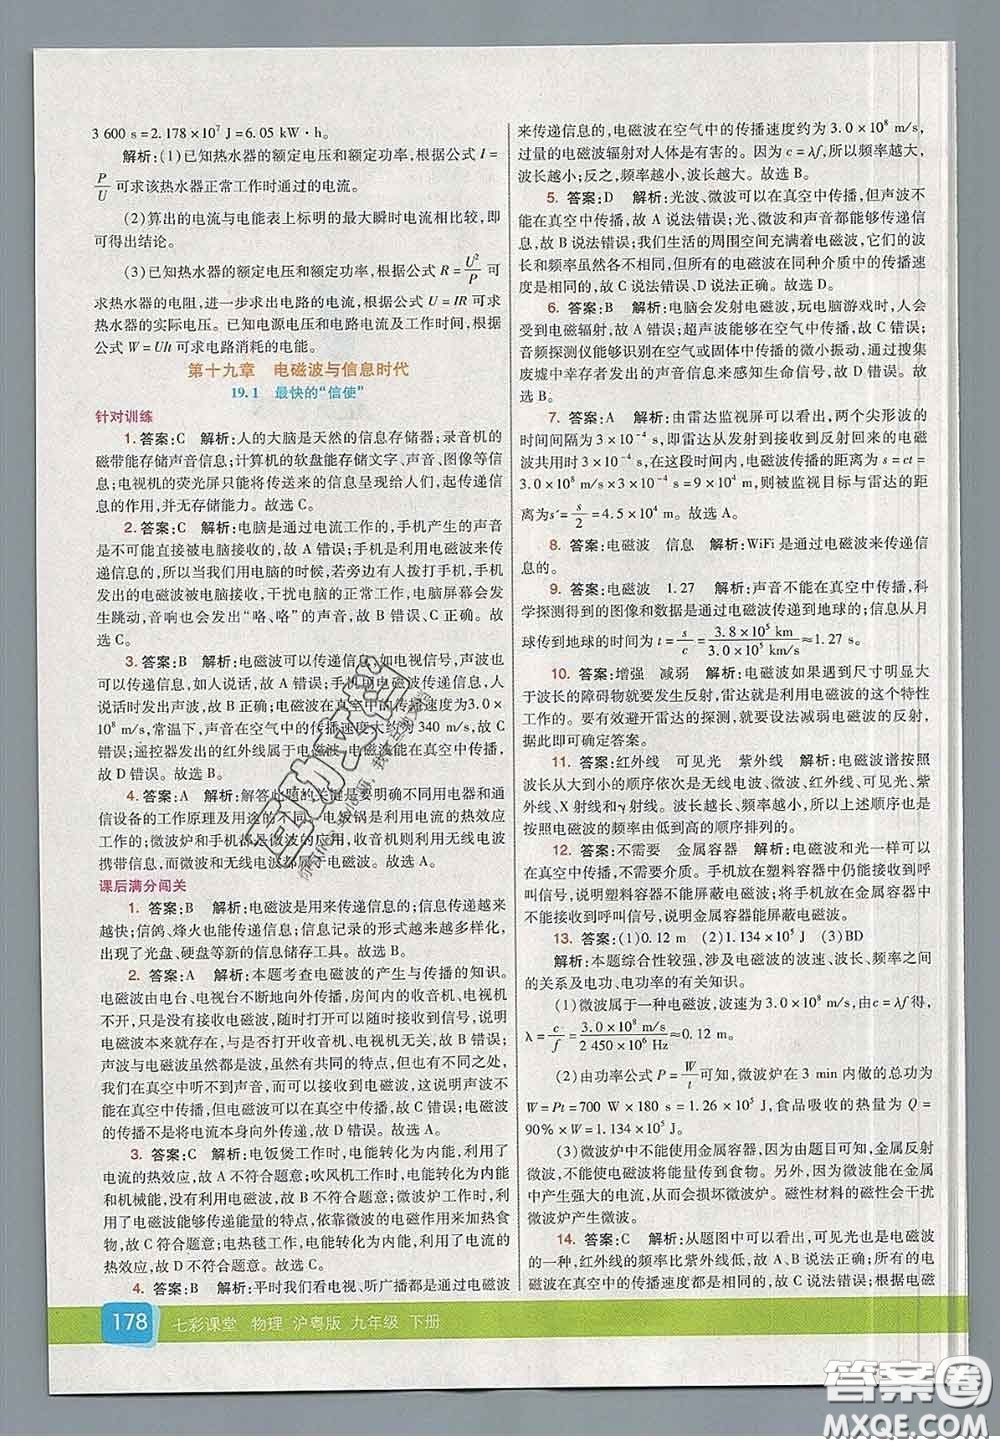 3 600 s=2.178×10⁷ J=6.05 kW·h。
解析:(1)已知热水器的额定电压和额定功率,根据公式 I=
P/U 可求该热水器正常工作时通过的电流。
(2)算出的电流与电能表上标明的最大瞬时电流相比较,即
可得出结论。
(3)已知热水器的额定电压和额定功率,根据公式 R=U²/P 可
求热水器的电阻,进一步求出电路的电流,根据公式 U=IR 可求
热水器的实际电压。已知电源电压和电路电流及工作时间,根据
公式 W=UIt 可求电路消耗的电能。
第十九章 电磁波与信息时代
19.1 最快的“信使”
针对训练
1. 答案:C 解析:人的大脑是天然的信息存储器;录音机的
磁带能存储声音信息;计算机的软盘能存储文字、声音、图像等信
息;电视机的荧光屏只能将传送来的信息呈现给人们,起传递信
息的作用,并无存储能力。故选 C。
2. 答案:C 解析:电脑是通过电流工作的,手机产生的声音
是不可能直接被电脑接收的,故 A 错误;手机是利用电磁波来传
递信息的,所以当我们使用电脑的时候,若旁边有人拨打手机,手机
发出的电磁波被电脑接收,干扰电脑的正常工作,电脑屏幕会发
生跳动,音箱会发出“咯、咯”的声音,故 B 错误,C 正确。故
选 C。
3. 答案:B 解析:电磁波可以传递信息,如电视信号,声波也
可以传递信息,如人说话,故 A 错误;手机用电磁波传递信息,人说
话时发出声波,故 B 正确;电磁波在空气中的传播速度为3.0×
10⁸ m/s,常温下,声音在空气中的传播速度大约为 340 m/s,故 C
错误;遥控器发出的红外线属于电磁波,电磁波能在真空中传播,
故 D 错误。故选 B。
4. 答案:A 解析:解答此题的关键是要明确不同用电器和通
信设备的工作原理及用途的不同。电饭锅是利用电流的热效应
工作的;微波炉和手机都是微波的应用,收音机则利用无线电波
携带信息,而微波和无线电波都属于电磁波。故选 A。
课后满分闯关
1. 答案:B 解析:电磁波是用来传递信息的;信息传递越来
越快;信鸽、烽火也能传递信息;信息记录的形式越来越多样化,
出现了光盘、硬盘等新的信息储存工具。故选 B。
2. 答案:A 解析:本题考查电磁波的产生与传播的知识。
电磁波由电台、电视台不断地向外传播,房间内的收音机、电视机
不开,只是没有接收电磁波,随时打开可以接收到信号,说明电
磁波本来就存在,与是否打开收音机、电视机无关,故 B 错误;
声波与电磁波虽然都是波,虽然有共同的特点,但也有区别,
我们在真空中听不到声音,但是能接收到电磁波,这说明声波不
能在真空中传播,但电磁波可以在真空中传播,故 C 错误;电磁波
的传播不是将电流本身向外传递,故 D 错误。故选 A。
3. 答案:C 解析:电饭煲工作时,电能转化为内能,利用了
电流的热效应,故 A 不符合题意;吹风机工作时,电能转化为内能
和机械能,没有利用电磁波,故 B 不符合题意;微波炉工作时,利
用了电磁波能够传递能量的特点,依靠微波的电磁作用来加热食
物,故 C 符合题意;电热毯工作时,电能转化为内能,利用了电流的
热效应,故 D 不符合题意。故选 C。
4. 答案:B 解析:平时我们看电视、听广播都是通过电磁波
来传递信息的,电磁波在空气中的传播速度约为 3.0×10⁸ m/s,
过量的电磁波辐射对人体是有害的。因为 c=λf,所以频率越大,
波长越小;反之,频率越小,波长越大。故选 B。
5. 答案:D 解析:光波、微波可以在真空中传播,但声波不
能在真空中传播,故 A 说法错误;光、微波和声音都能够传递信
息,故 B 说法错误;我们生活的周围空间充满着电磁波,它们的波
长和频率虽然各不相同,但所有的电磁波在同种介质中的传播速
度是相同的,故 C 说法错误,D 说法正确。故选 D。
6. 答案:B 解析:电脑会发射电磁波,玩电脑游戏时,人会
受到电磁辐射,故 A 错误;超声波能够在空气中传播,故 C 错误;
音频探测仪能够识别在空气或固体中传播的微小振动,通过搜集
废墟中幸存者发出的声音来感知生命信号,故 D 错误。故
选 B。
7. 答案:A 解析:由雷达监视屏可以看出,两个尖形波的
时间间隔为 3×10⁻⁴ s,即雷达从发射到接收到反射回来的电磁
波共用时 3×10⁻⁴ s,在这段时间内,电磁波传播的距离为 s=ct=
3.0×10⁸ m/s×3×10⁻⁴ s=9×10⁴ m,则被监视目标与雷达的距
离为s′=s/2=4.5×10⁴ m。故选 A。
8. 答案:电磁波 信息 解析:WiFi 是通过电磁波来传递信
息的。
9. 答案:电磁波 1.27 解析:声音不能在真空中传播,科
学探测得到的图像和数据是通过电磁波传递到地球的;信息从月
球传到地球的时间为 t=s/c=3.8×10⁵ km/3.0×10⁵ km/s≈1.27 s。
10. 答案:增强 减弱 解析:电磁波如果遇到尺寸明显大
于波长的障碍物就要发生反射,雷达就是利用电磁波的这个特性
工作的。要有效避开雷达的探测,就要设法减弱电磁波的反射,
据此即可确定答案。
11. 答案:红外线 可见光 紫外线 解析:电磁波谱按照
波长从大到小的顺序依次是无线电波、微波、红外线、可见光、紫
外线、X 射线和γ射线。波长越长、频率越小,所以上述顺序也是
按照电磁波的频率由低到高的顺序排列的。
12. 答案:不需要 金属容器 解析:电磁波和光一样可以
在真空中传播,不需要介质。手机放在塑料容器中仍能接收到
呼叫信号,说明塑料容器不能屏蔽电磁波;将手机放在金属容器
中不能接收到呼叫信号,说明金属容器能屏蔽电磁波。
13. 答案:(1)0.12 m (2)1.134×10⁵ J (3)BD
解析:本题综合性较强,涉及电磁波的波速、波长、频率之间
的关系及电功、电功率的有关知识。
(1)微波属于一种电磁波,波速为 3.0×10⁸ m/s,由 c=λf 得,
λ=c/f=3.0×10⁸ m/s/2 450×10⁶ Hz≈0.12 m。
(2)由功率公式 P=W/t可知,微波炉在 3 min 内做的总功为
W=Pt=700 W×180 s=1.26×10⁵ J,食品吸收的热量为 Q=
90%×W=1.134×10⁵ J。
(3)微波炉中不能使用金属容器,因为由题目可知,金属反射
微波,不能使电磁波将能量传到食物。另外,因为微波能在金属
中产生强大的电流,从而会损坏微波炉。磁性材料的磁性会干扰
微波炉产生微波。
14. 答案:C 解析:从题图中可以看出,可见光也是电磁波
的一种,红外线的频率比紫外线低,故 A、B 说法正确;所有的电
磁波在真空中的传播速度都是相同的,故 C 说法错误;根据电磁
178 七彩课堂 物理 沪粤版 九年级 下册
答案圈
MXQE.COM